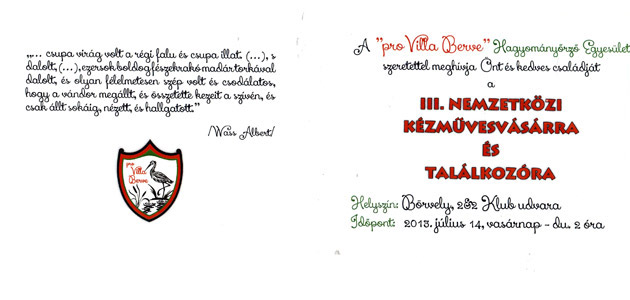 „... csupa virág volt a régi falu és csupa illat. (...), s
dalolt, (...), ezer sok boldog fészekrakó madár torkával
dalolt, és olyan félelmetesen szép volt és csodálatos,
hogy a vándor megállt, és összetette kezeit a szívén, és
csak állt sokáig, nézett, és hallgatott."
/Wass Albert/
pro
Villa
Berve
A "pro Villa Berve" Hagyományőrző Egyesület
szeretettel meghívja Önt és kedves családját
a
III. NEMZETKÖZI
KÉZMŰVESVÁSÁRRA
ÉS
TALÁLKOZÓRA
Helyszín: Börvely, 2&2 Klub udvara
Időpont: 2013. július 14, vasárnap - du. 2 óra